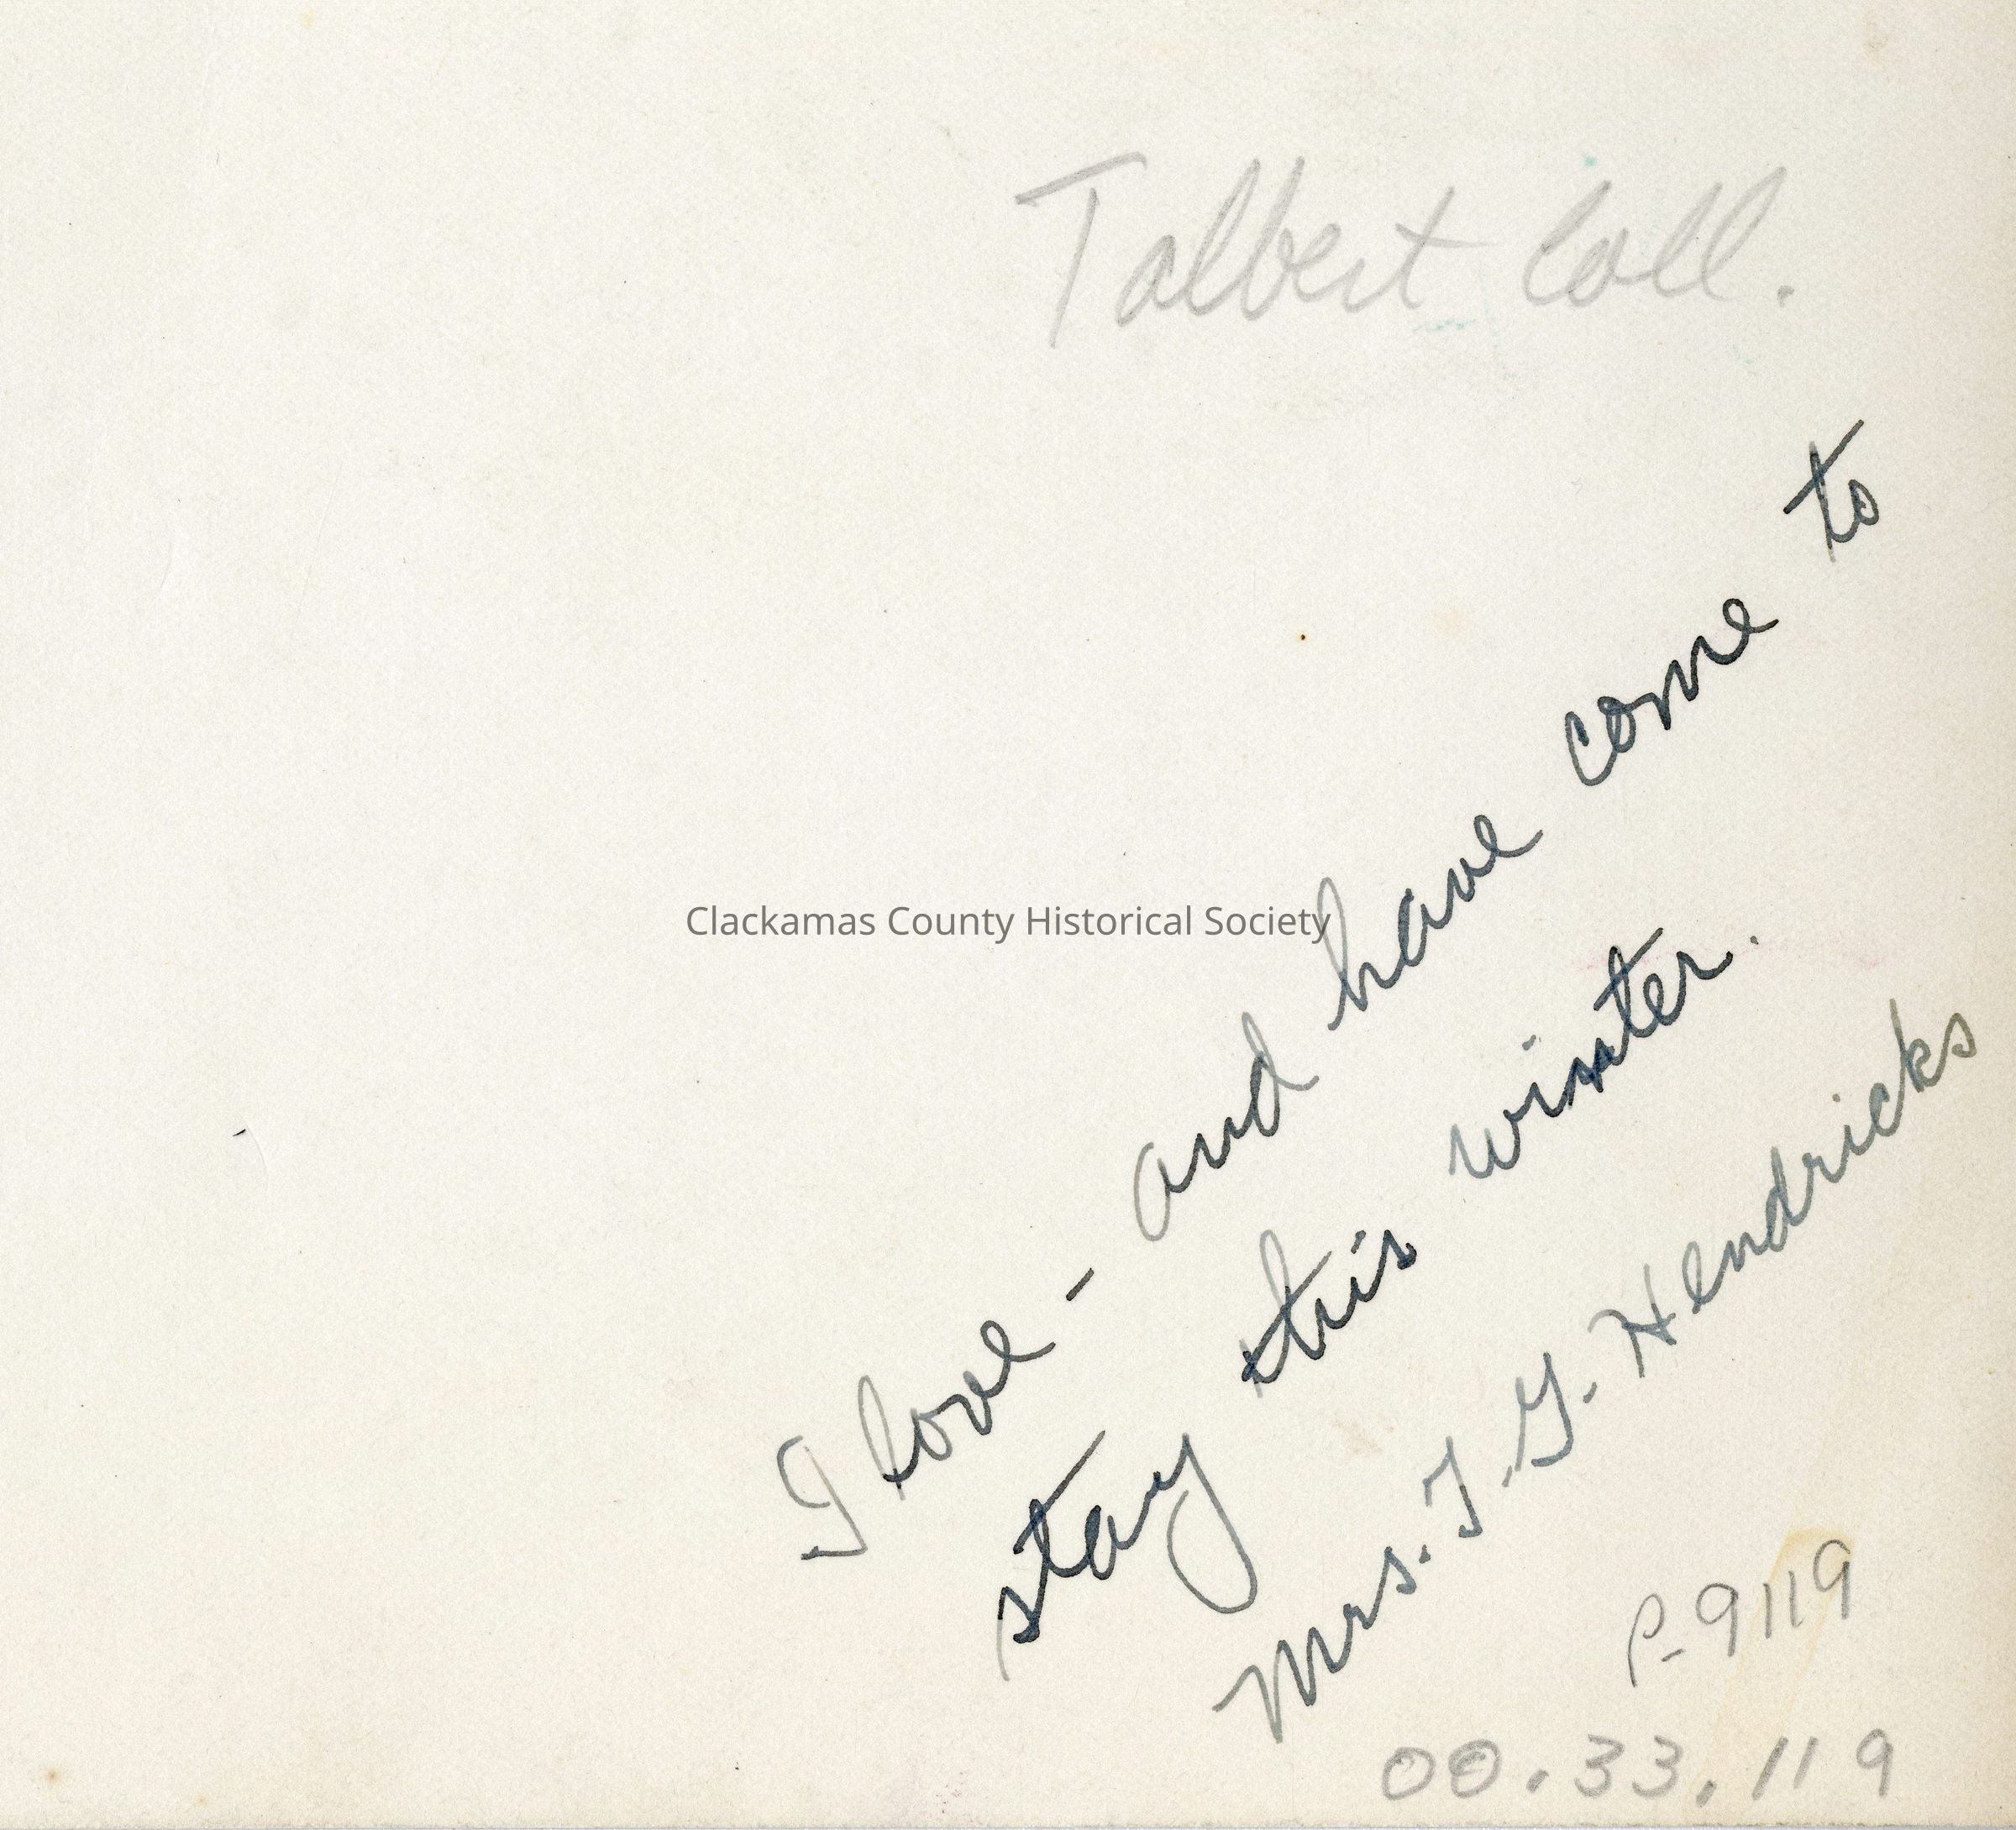 Talbert Coll.
I love - and have come to
stay this winter.
Mrs. T. G. Hendricks
Clackamas County Historical Society
P-9119
00.33.119